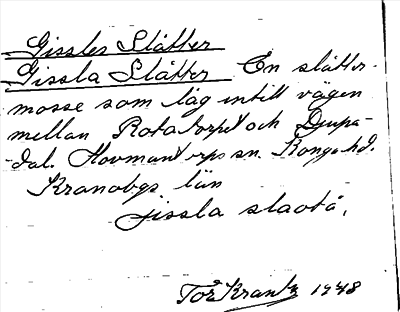 Gissles Slåtter
Gissla Slåtter En slåtter-
mosse som låg intill vägen
mellan Rotatorpet och Djupa-
dal. Hovmantorps sn. Konga hd.
Kronobgs. län
jissla slaotå.
Tor Krantz 1948